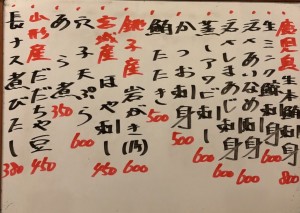 鹿児島産生本鮪刺 800
生ミンク鯨刺 600
活〆あいなめ刺身 600
活〆しまあじ刺身 600
蒸しアワビ刺 600
かつお刺身 500
鮪たたき 500
銚子産岩がき(一ヶ) 600
宮城産ほや刺し 450
穴子天ぷら 600
あら煮 350
山形産だだちゃ豆 450
長ナス煮びたし 380